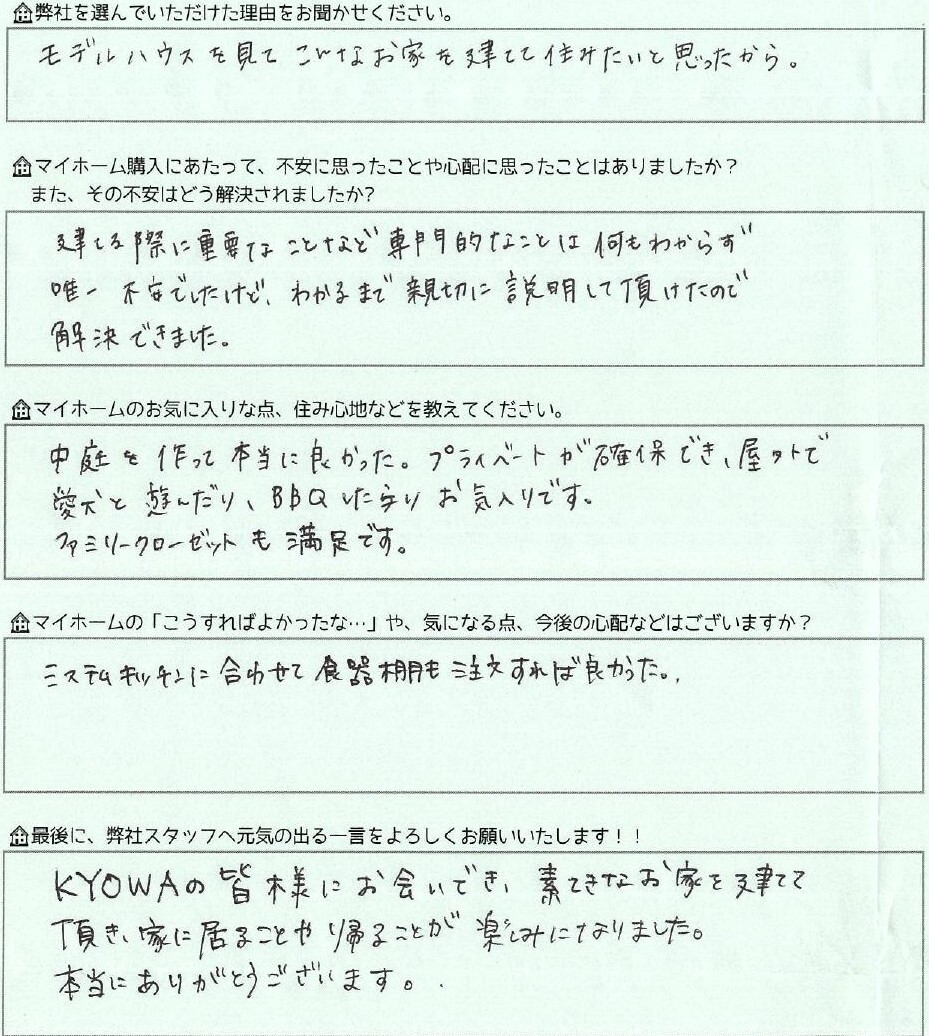 弊社を選んでいただけた理由をお聞かせください。
モデルハウスを見てこんなお家を建てて住みたいと思ったから。
マイホーム購入にあたって、不安に思ったことや心配に思ったことはありましたか?
また、その不安はどう解決されましたか?
建てる際に重要なことなど専門的なことは何もわからず
唯一不安でしたけど、わかるまで親切に説明して頂けたので
解決できました。
マイホームのお気に入りな点、住み心地などを教えてください。
中庭を作って本当に良かった。プライベートが確保でき、屋外で
愛犬と遊んだり、BBQしたりお気入りです。
ファミリークローゼットも満足です。
マイホームの「こうすればよかったな…」や、気になる点、今後の心配などはございますか?
システムキッチンに合わせて食器棚も注文すれば良かった。
最後に、弊社スタッフへ元気の出る一言をよろしくお願いいたします!!
KYOWAの皆様にお会いでき、素てきなお家を建てて
頂き、家に居ることや帰ることが楽しみになりました。
本当にありがとうございます。